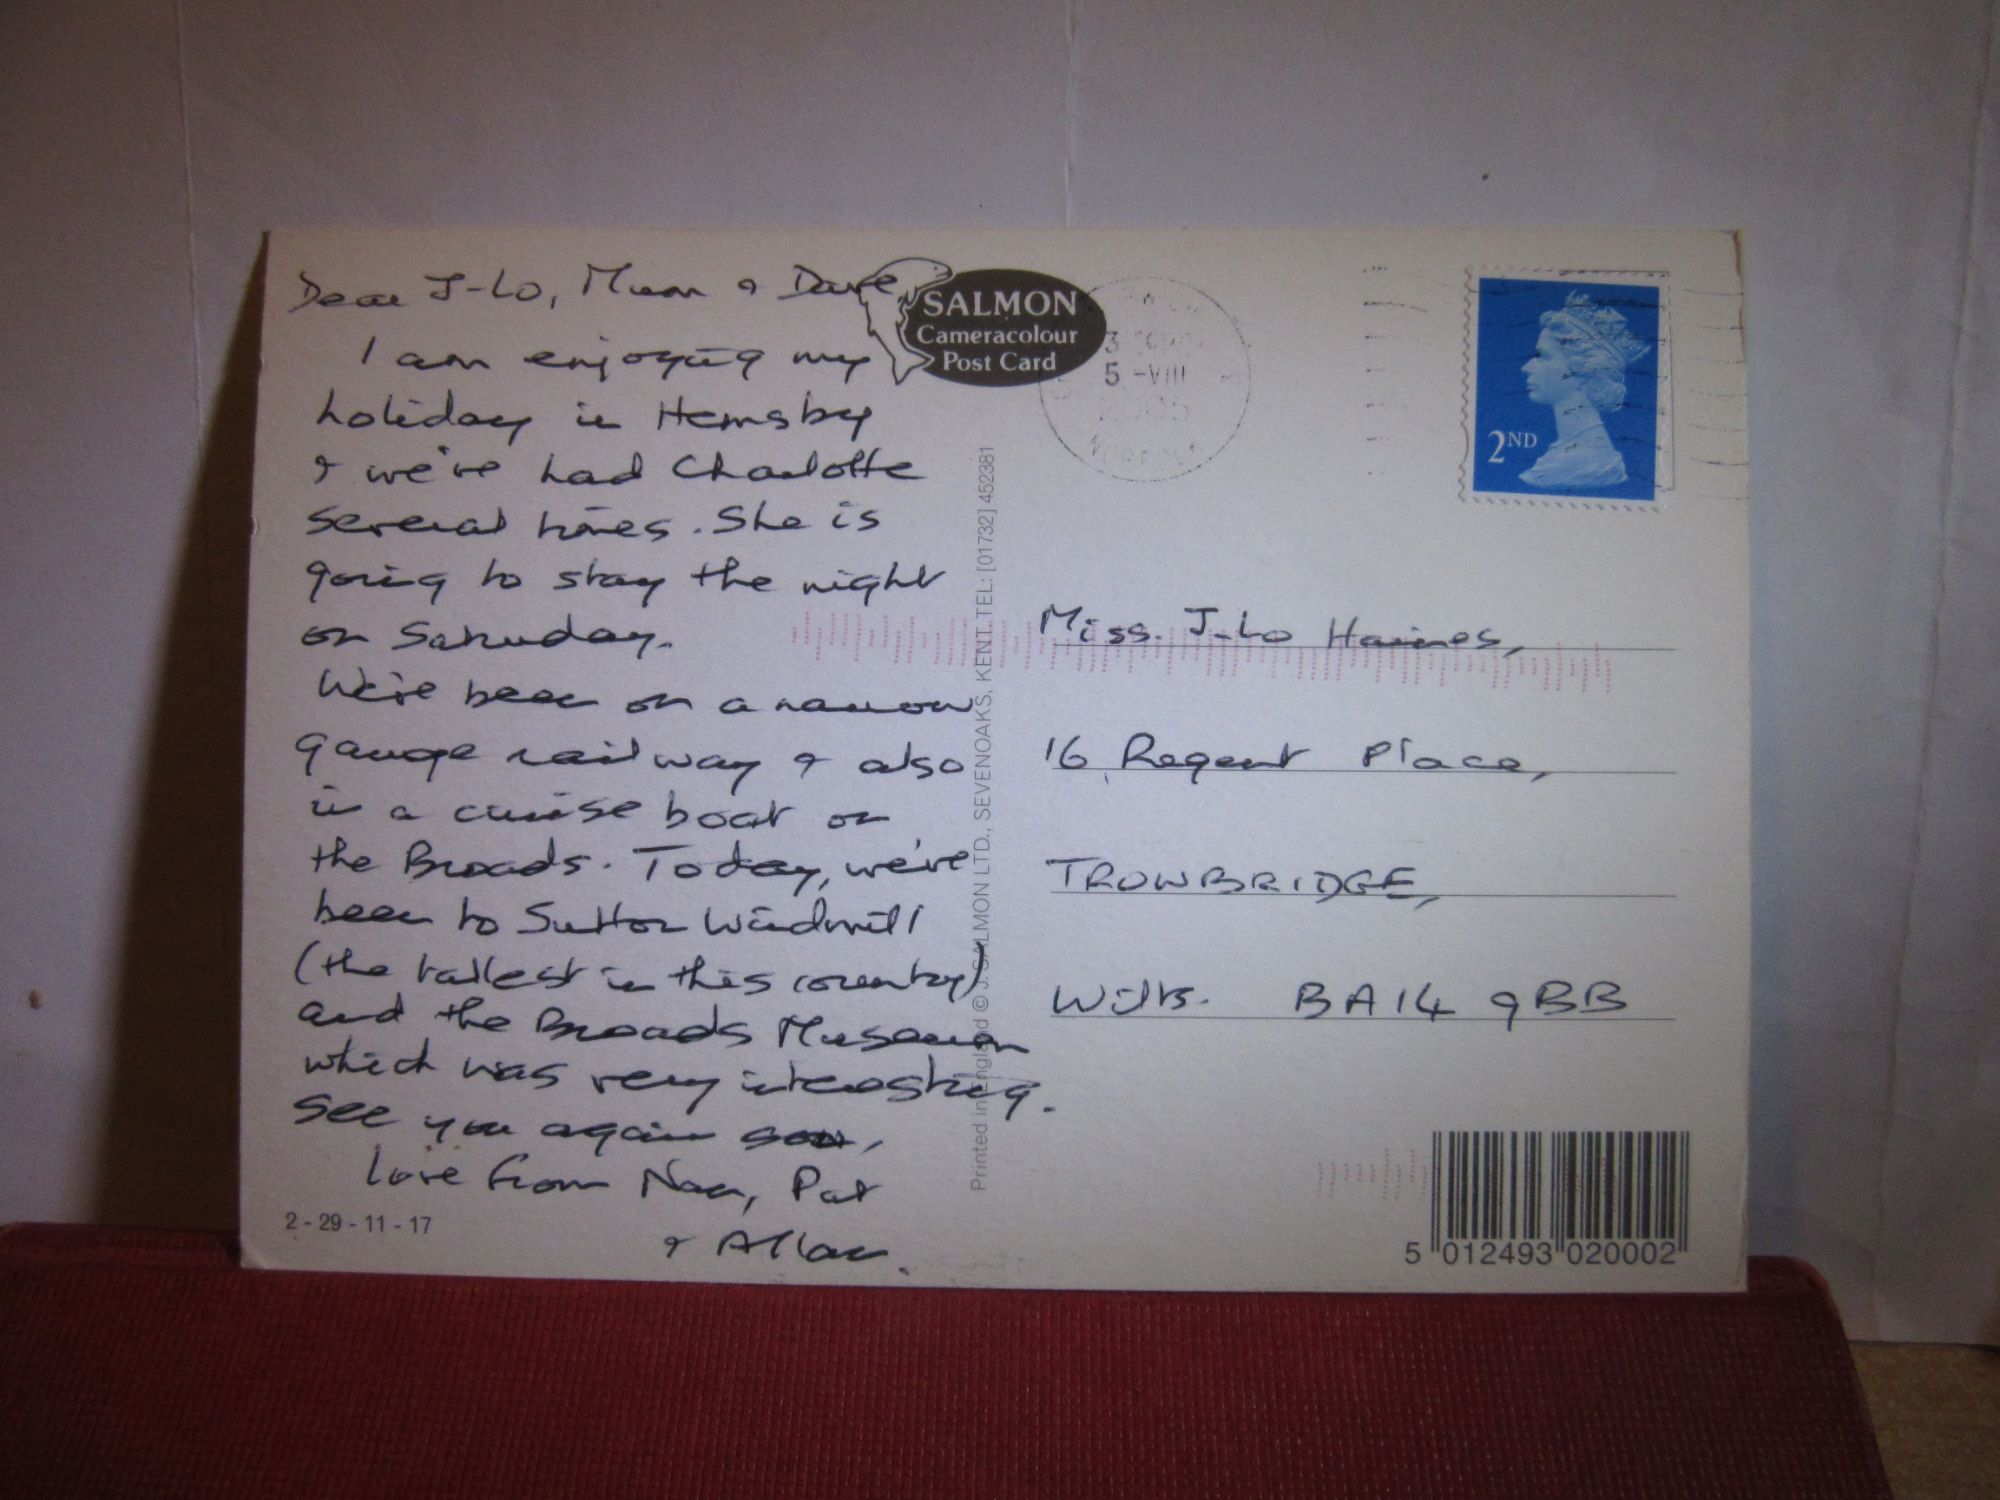 Dear J-Lo, Mum & Dave,
I am enjoying my
holiday in Hemsby
& we've had Charlotte
several times. She is
going to stay the night
on Saturday.
We've been on a narrow
gauge railway & also
in a cruise boat on
the Broads. Today, we've
been to Sutton Windmill
(the tallest in this country)
and the Broads Museum
which was very interesting.
See you again soon,
Love from Nan, Pat
& Allan.
2 - 29 - 11 - 17
SALMON
Cameracolour
Post Card
Printed in England © J. SALMON LTD., SEVENOAKS, KENT. TEL: [01732] 452381
5 -VIII
2005
NORFOLK
2ND
Miss. J-Lo Haines,
16 Regent Place,
TROWBRIDGE,
Wilts. BA14 9BB
5 012493 020002